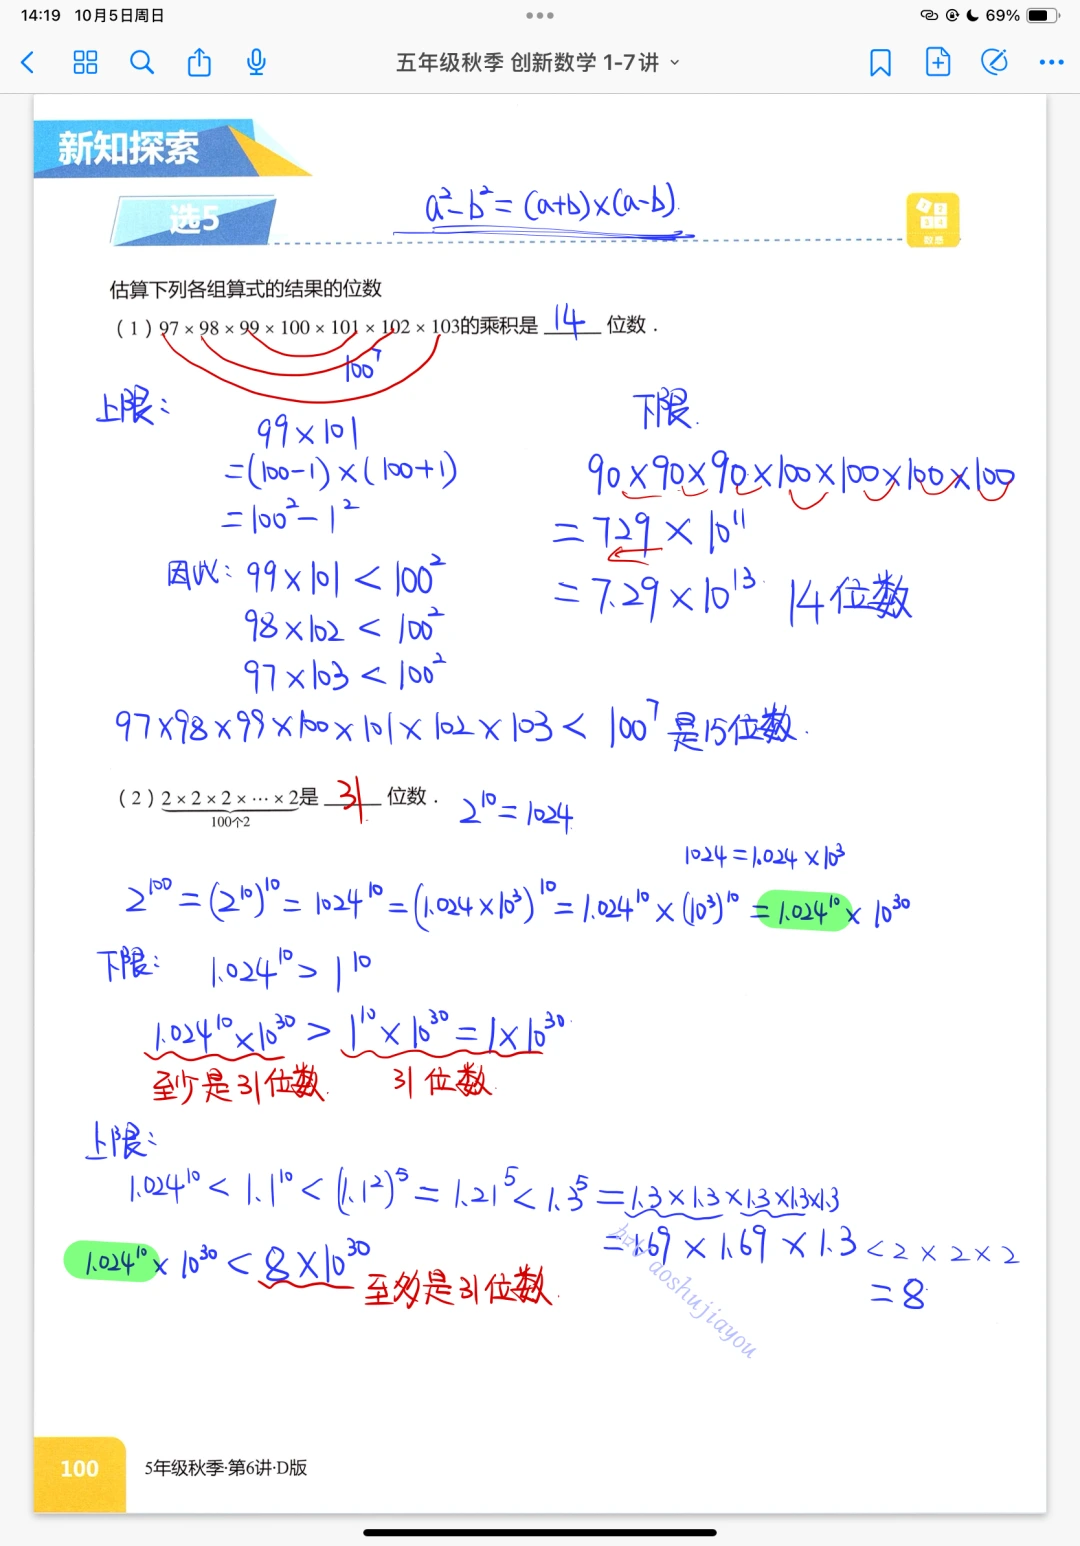 14:19 10月5日周日
69%
五年级秋季 创新数学 1-7讲
新知探索
选5
a²-b²=(a+b)×(a-b).
数感
估算下列各组算式的结果的位数
（1）97×98×99×100×101×102×103的乘积是 14 位数．
100⁷
上限:
99×101
=(100-1)×(100+1)
=100²-1²
因此: 99×101<100²
98×102<100²
97×103<100²
97×98×99×100×101×102×103<100⁷ 是15位数.
下限.
90×90×90×100×100×100×100
=729×10¹¹
=7.29×10¹³ 14位数
（2）2×2×2×…×2是 31 位数．
100个2
2¹⁰=1024
1024=1.024×10³
2¹⁰⁰=(2¹⁰)¹⁰=1024¹⁰=(1.024×10³)¹⁰=1.024¹⁰×(10³)¹⁰=1.024¹⁰×10³⁰
下限: 1.024¹⁰>1¹⁰
1.024¹⁰×10³⁰>1¹⁰×10³⁰=1×10³⁰.
至少是31位数. 31位数.
上限:
1.024¹⁰<1.1¹⁰<(1.1²)⁵=1.21⁵<1.3⁵=1.3×1.3×1.3×1.3×1.3
=1.69×1.69×1.3<2×2×2
=8
1.024¹⁰×10³⁰<8×10³⁰
至多是31位数.
aoshujiayou
100
5年级秋季·第6讲·D版